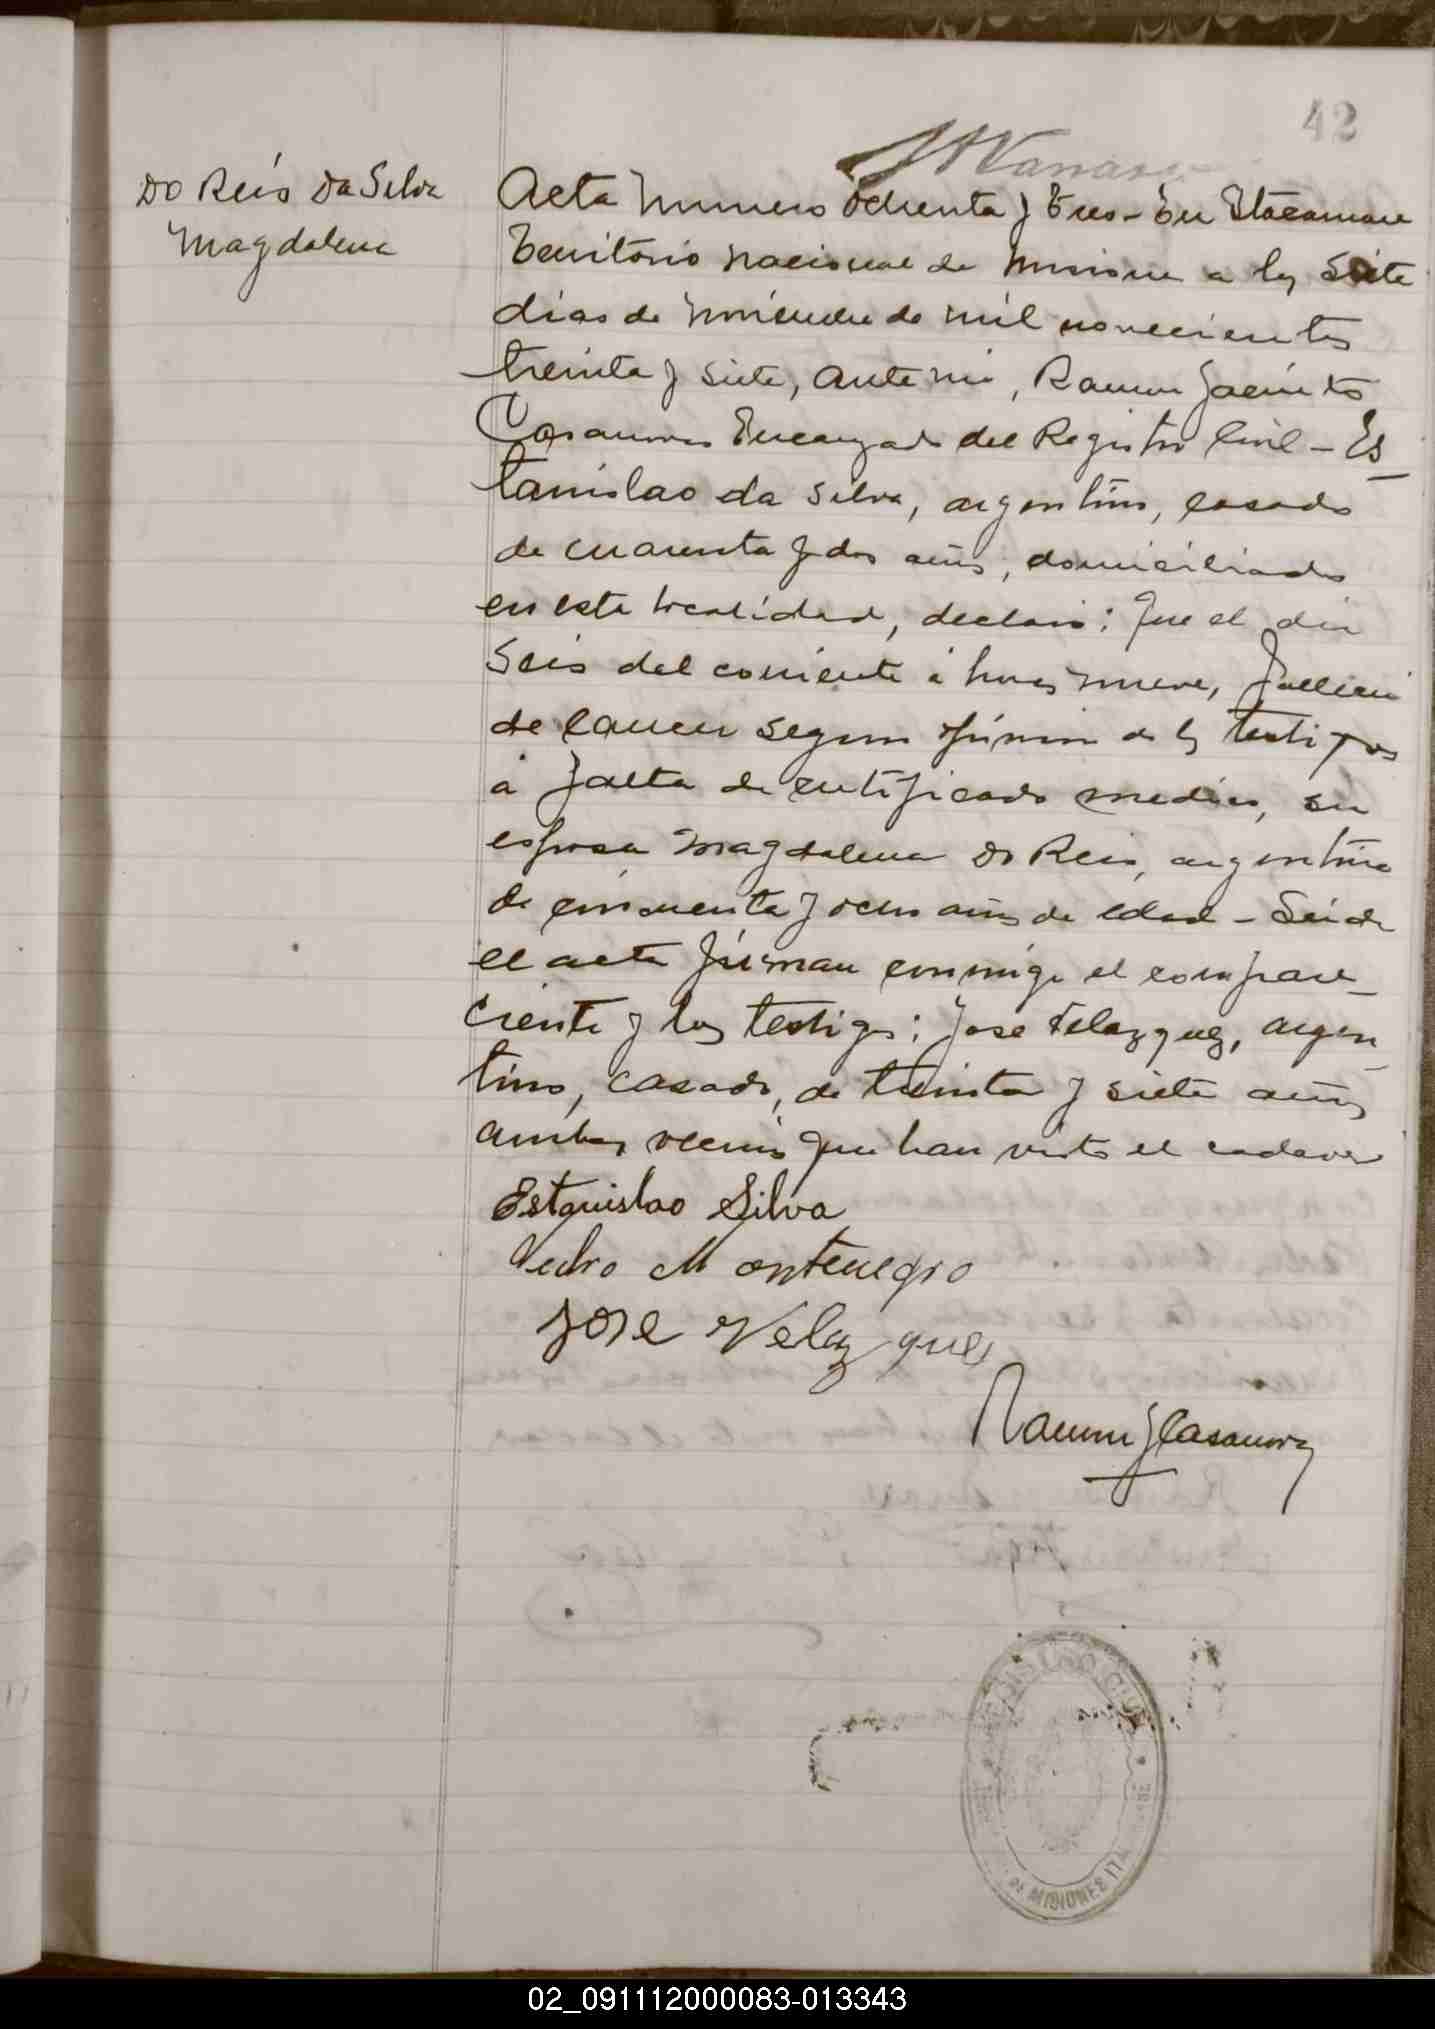 42
Do Reis Da Silva
Magdalena
Acta Numero Ochenta y Tres - En Itacaruare
Territorio Nacional de Misiones a los Siete
días de Noviembre de mil novecientos
treinta y siete, ante mi, Ramon Jacinto
Casanova Encargado del Registro Civil - Es
tanislao da Silva, argentino, casado
de cuarenta y dos años, domiciliado
en esta localidad, declaró: Que el dia
Seis del corriente á horas nueve, falleció
de cancer segun opinion de los testigos
á falta de certificado medico, su
esposa Magdalena Do Reis, argentina
de cincuenta y ocho años de edad - Leida
el acta firman conmigo el compare_
ciente y los testigos: Jose Velazquez, argen_
tino, casado, de treinta y siete años
ambos vecinos que han visto el cadaver
Estanislao Silva
Pedro Montenegro
Jose Velazquez
Ramon J Casanova
REGISTRO CIVIL
DE MISIONES
02_091112000083-013343